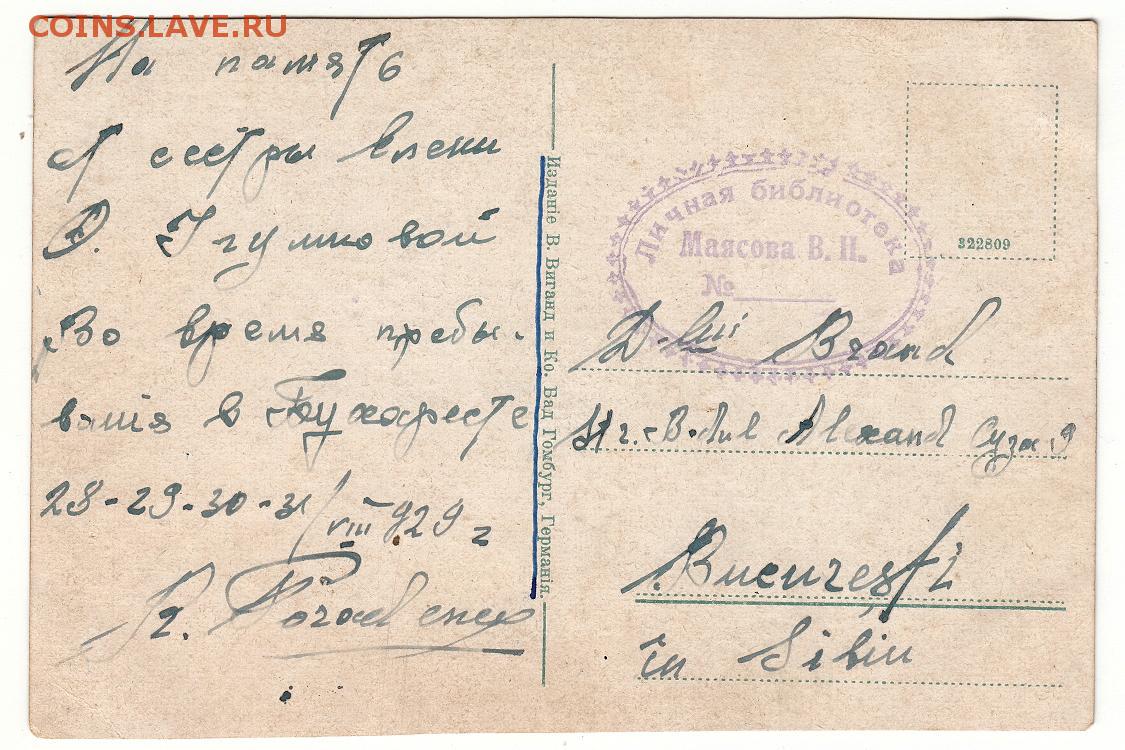 COINS.LAVE.RU
На память
от сестры
Во время пребы-
вания в Бухаресте
28-29-30-31/VIII 929 г
Изданіе В. Виганд и Ко. Бад Гомбург, Германія
Личная библиотека
Маясова В. Н.
№
322809
D-lui Brand
Str. B-dul Alexand Cуza 9
București
în Sibiu